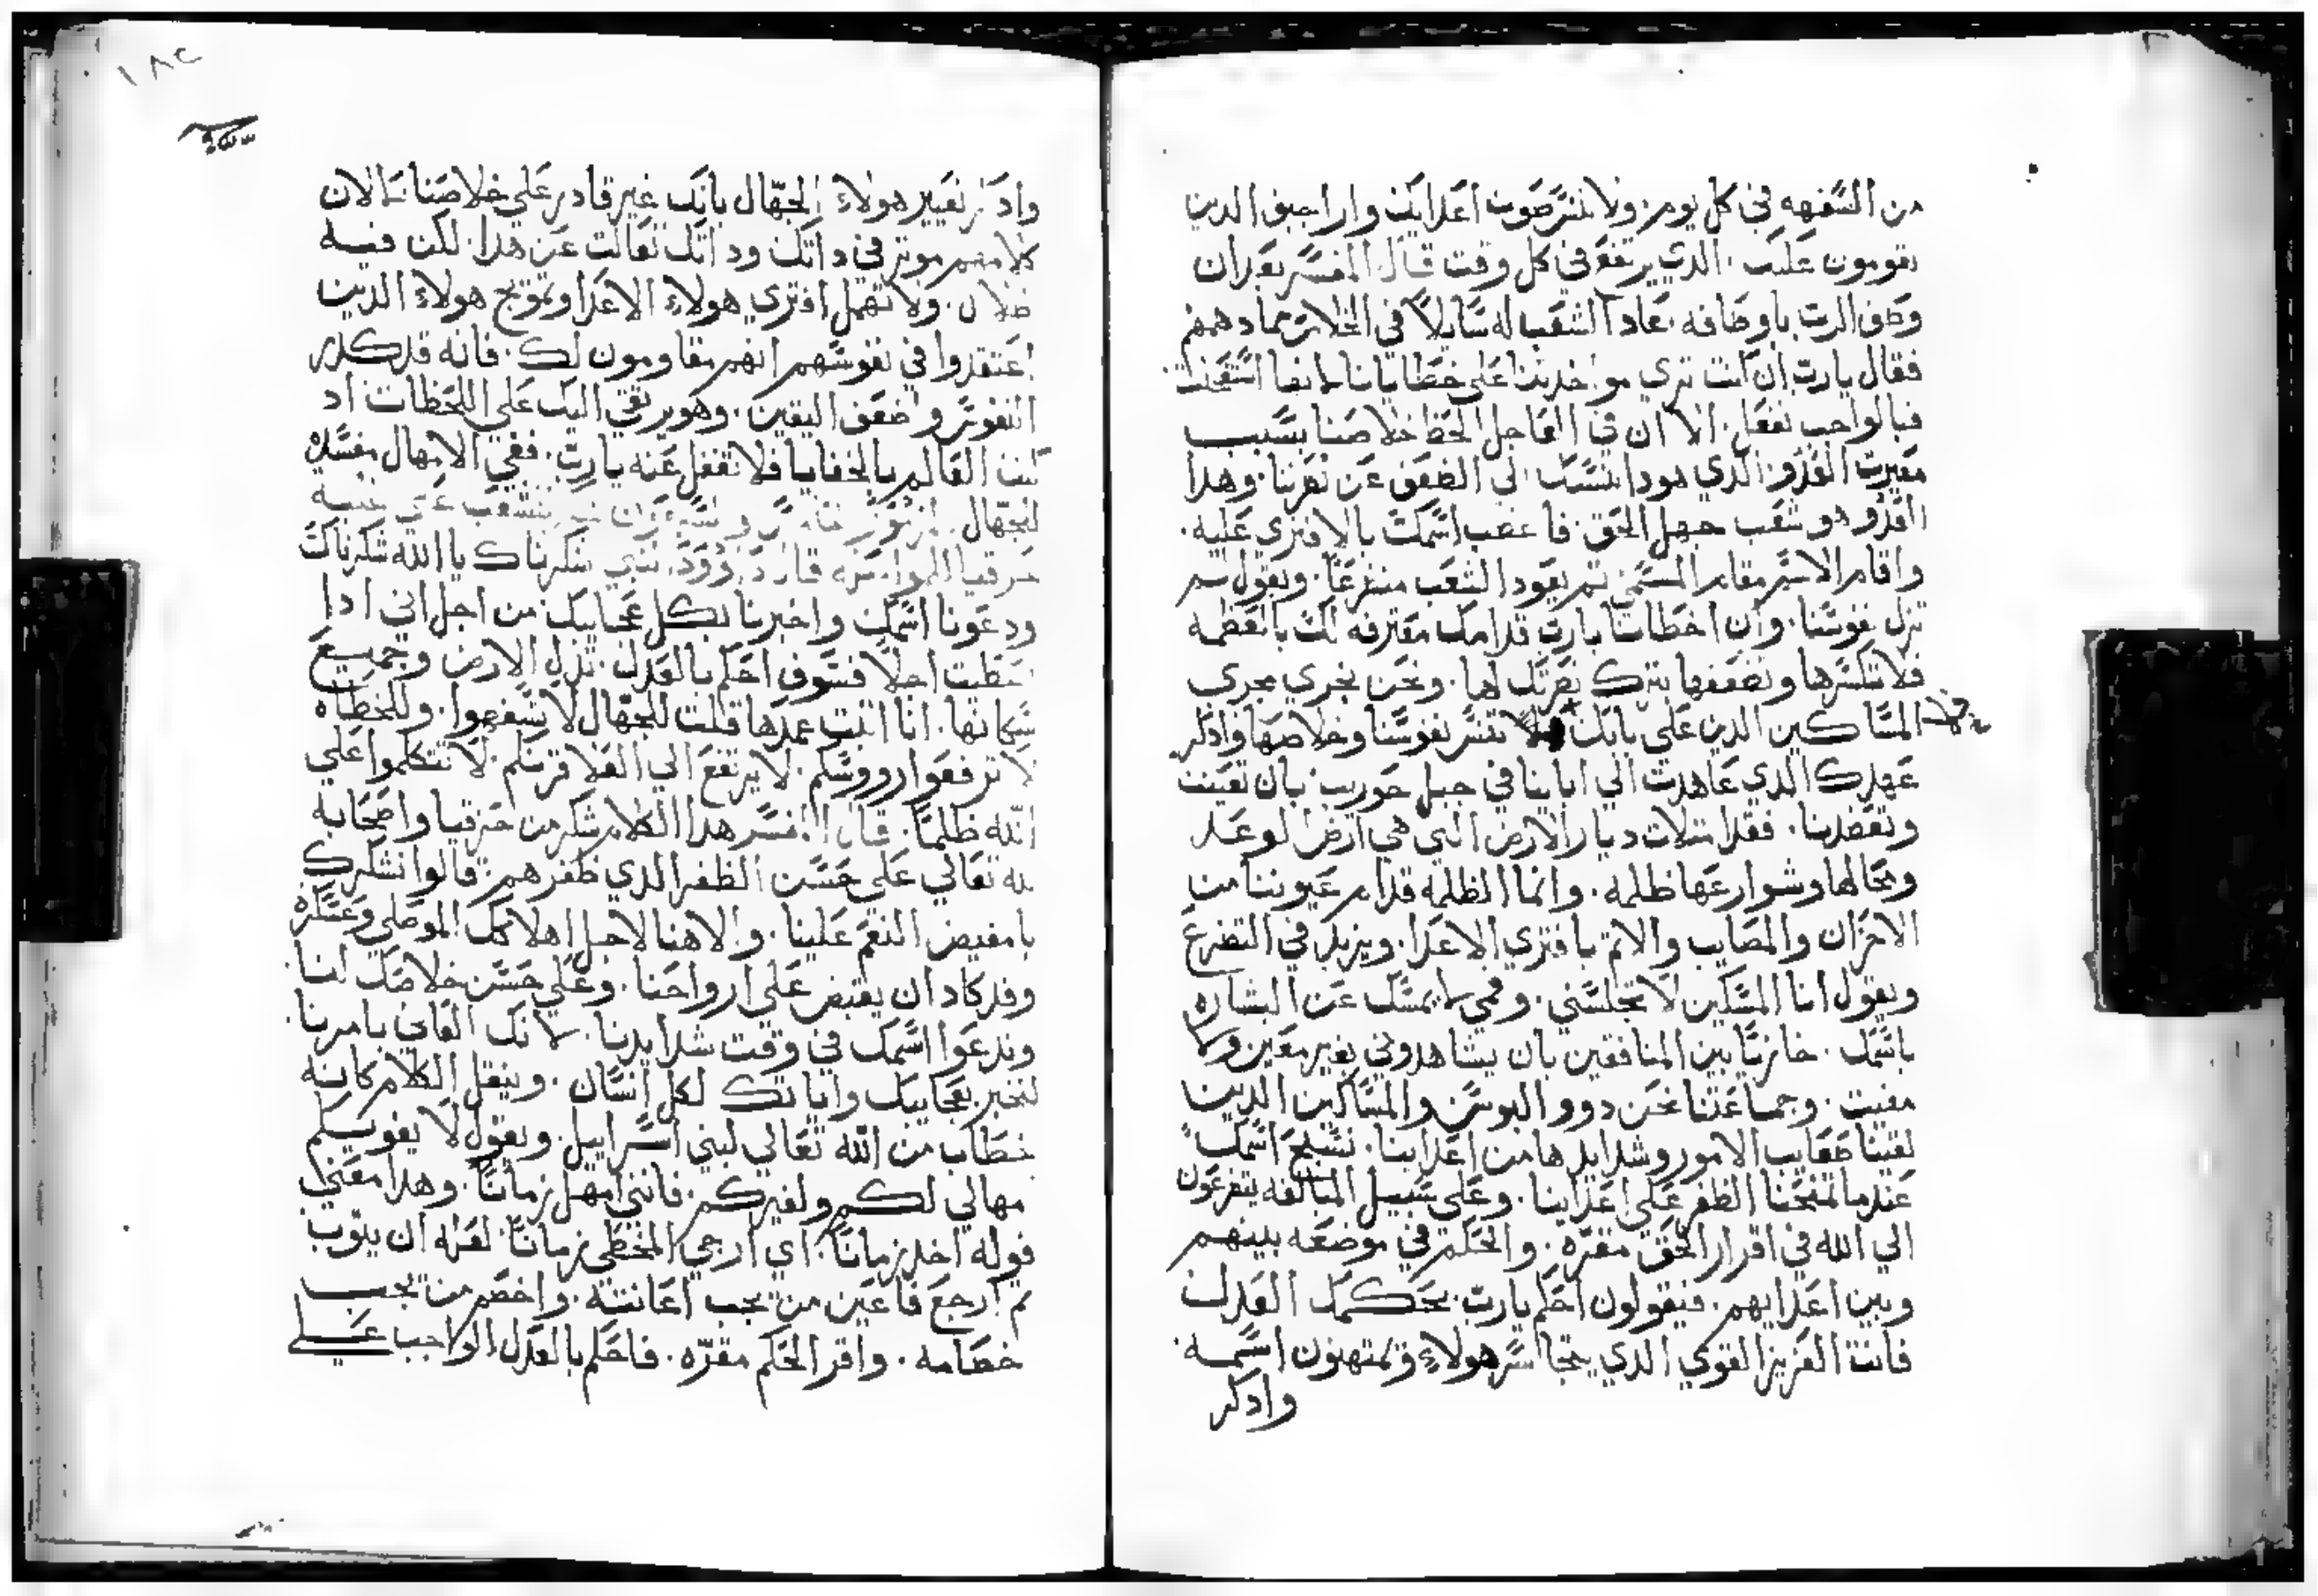 من السفهه في كل يوم. ولا تنس صوت اعدايك واراجيف الدين
يقومون عليك. الدي يرتفع في كل وقت قال المفسر بعد ان
وصف الرب باوصافه. عاد الشعب له سايلاً في الخلاص مما دهمهم
فقال يارب ان كنت تري مواخدتنا علي خطايانا لانها استفحلت
فبالواجب تفعل. الا ان في العاجل الحظ خلاصنا بسبب
معيرت العدو الدي هو دا ينسبك الي الضعف عن نصرتنا. وهدا
العدو هو شعب جهل الحق. فاغضب اسمك بالافتري عليه.
واقام الاسم مقام المسمي. ثم يعود الشعب متضرعاً. ويقول لم
تزل نفوسنا. وان اخطاتنا يارب قدامك معترفه لك بالعظمه
فلا تكسرها وتضعفها بترك نصرتك لها. ونحن نجري مجري
المساكين الدين علي بابك فلا تنس نفوسنا وخلاصها وادكر
عهدك الدي عاهدت الي اباينا في جبل حوريب بان تعيننا
وتعضدنا. فقد امتلات ديار الارض التي هي ارض الوعد
ومحالها وشوارعها ظلمه. وانما الظلمه قدام عيوننا من
الاحزان والمصايب والاثم بافتري الاعدا. ويزيد في التضرع
ويقول انا المسكين لا تجلسني. وفمي لا يمسك عن البشاره
باسمك. خازياً بين المنافقين بان يشاهدوني بغير معين ولا
مغيث. وجماعتنا نحن دوو البوس والمساكين الدين
لقينا صعايب الامور وشدايدها من اعداينا. نسبح اسمك
عندما تمنحنا الظفر علي اعداينا. وعلي سبيل المبالغه يتضرعون
الي الله في اقرار الحق مقره. والحكم في موضعه بينهم
وبين اعدايهم. فيقولون احكم يارب بحكمك العدل
فانت العزيز القوي الدي يتجاسر هولاء ويمتهنون اسمه
وادكر
١٨٢
وادكر تعيير هولاء الجهال بانك غير قادر علي خلاصنا الان
كلامهم موتر في داتك وداتك تعالت عن هدا. لكن فيه
ضلال. ولا تهمل افتري هولاء الاعدا وتمويج هولاء الدين
اعتقدوا في نفوسهم انهم مقاومون لك. فانه قد كدر
النفوس واضعف اليقين. وهو يرتقي اليك علي اللحظات اد
كنت العالم بالخفايا فلا تغفل عنه يارب. ففي الامهال مفسده
للجهال.
حزقيا المؤامره قال داوود النبي شكرناك يا الله شكرناك
ودعونا اسمك واخبرنا بكل عجايبك من اجل اني ادا
حظيت اجلاً فسوف احكم بالعدل. تزل الارض وجميع
سكانها. انا اثبت عمدها قلت للجهال لا تسفهوا. وللخطاه
لا ترفعوا رووسكم. لا يرتفع الي العلا قرنكم. لا تتكلموا علي
الله ظلماً. قال المفسر هدا الكلام شكر من حزقيا واصحابه
لله تعالي علي حسن الظفر الدي ظفرهم. قالوا نشكرك
يا مفيض النعم علينا. والاهنا لاجل اهلاكك الموصلي وعسكره
وقد كاد ان يقبض علي ارواحنا. وعلي حسن خلاصك لنا
وندعوا اسمك في وقت شدايدنا. لانك العاني بامرنا.
لنخبر بعجايبك واياتك لكل انسان. وينقل الكلام كانه
خطاب من الله تعالي لبني اسراييل. ويقول لا يغويكم
مهالي لكم ولغيركم. فانني امهل زماناً. وهدا معني
قوله اخد زماناً. اي ارجي المخطي زماناً. لعله ان يتوب
ثم ارجع فاعين من تجب اعانته. واخصم من يجب
خصامه. واقر الحكم مقره. فاحكم بالعدل الواجب علي